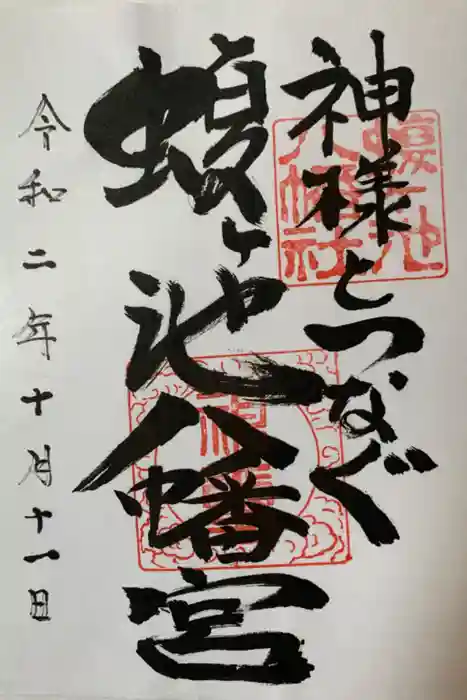 神様とつなぐ
蝮ヶ池八幡宮
令和二年十月十一日
蝮ヶ池
八幡社